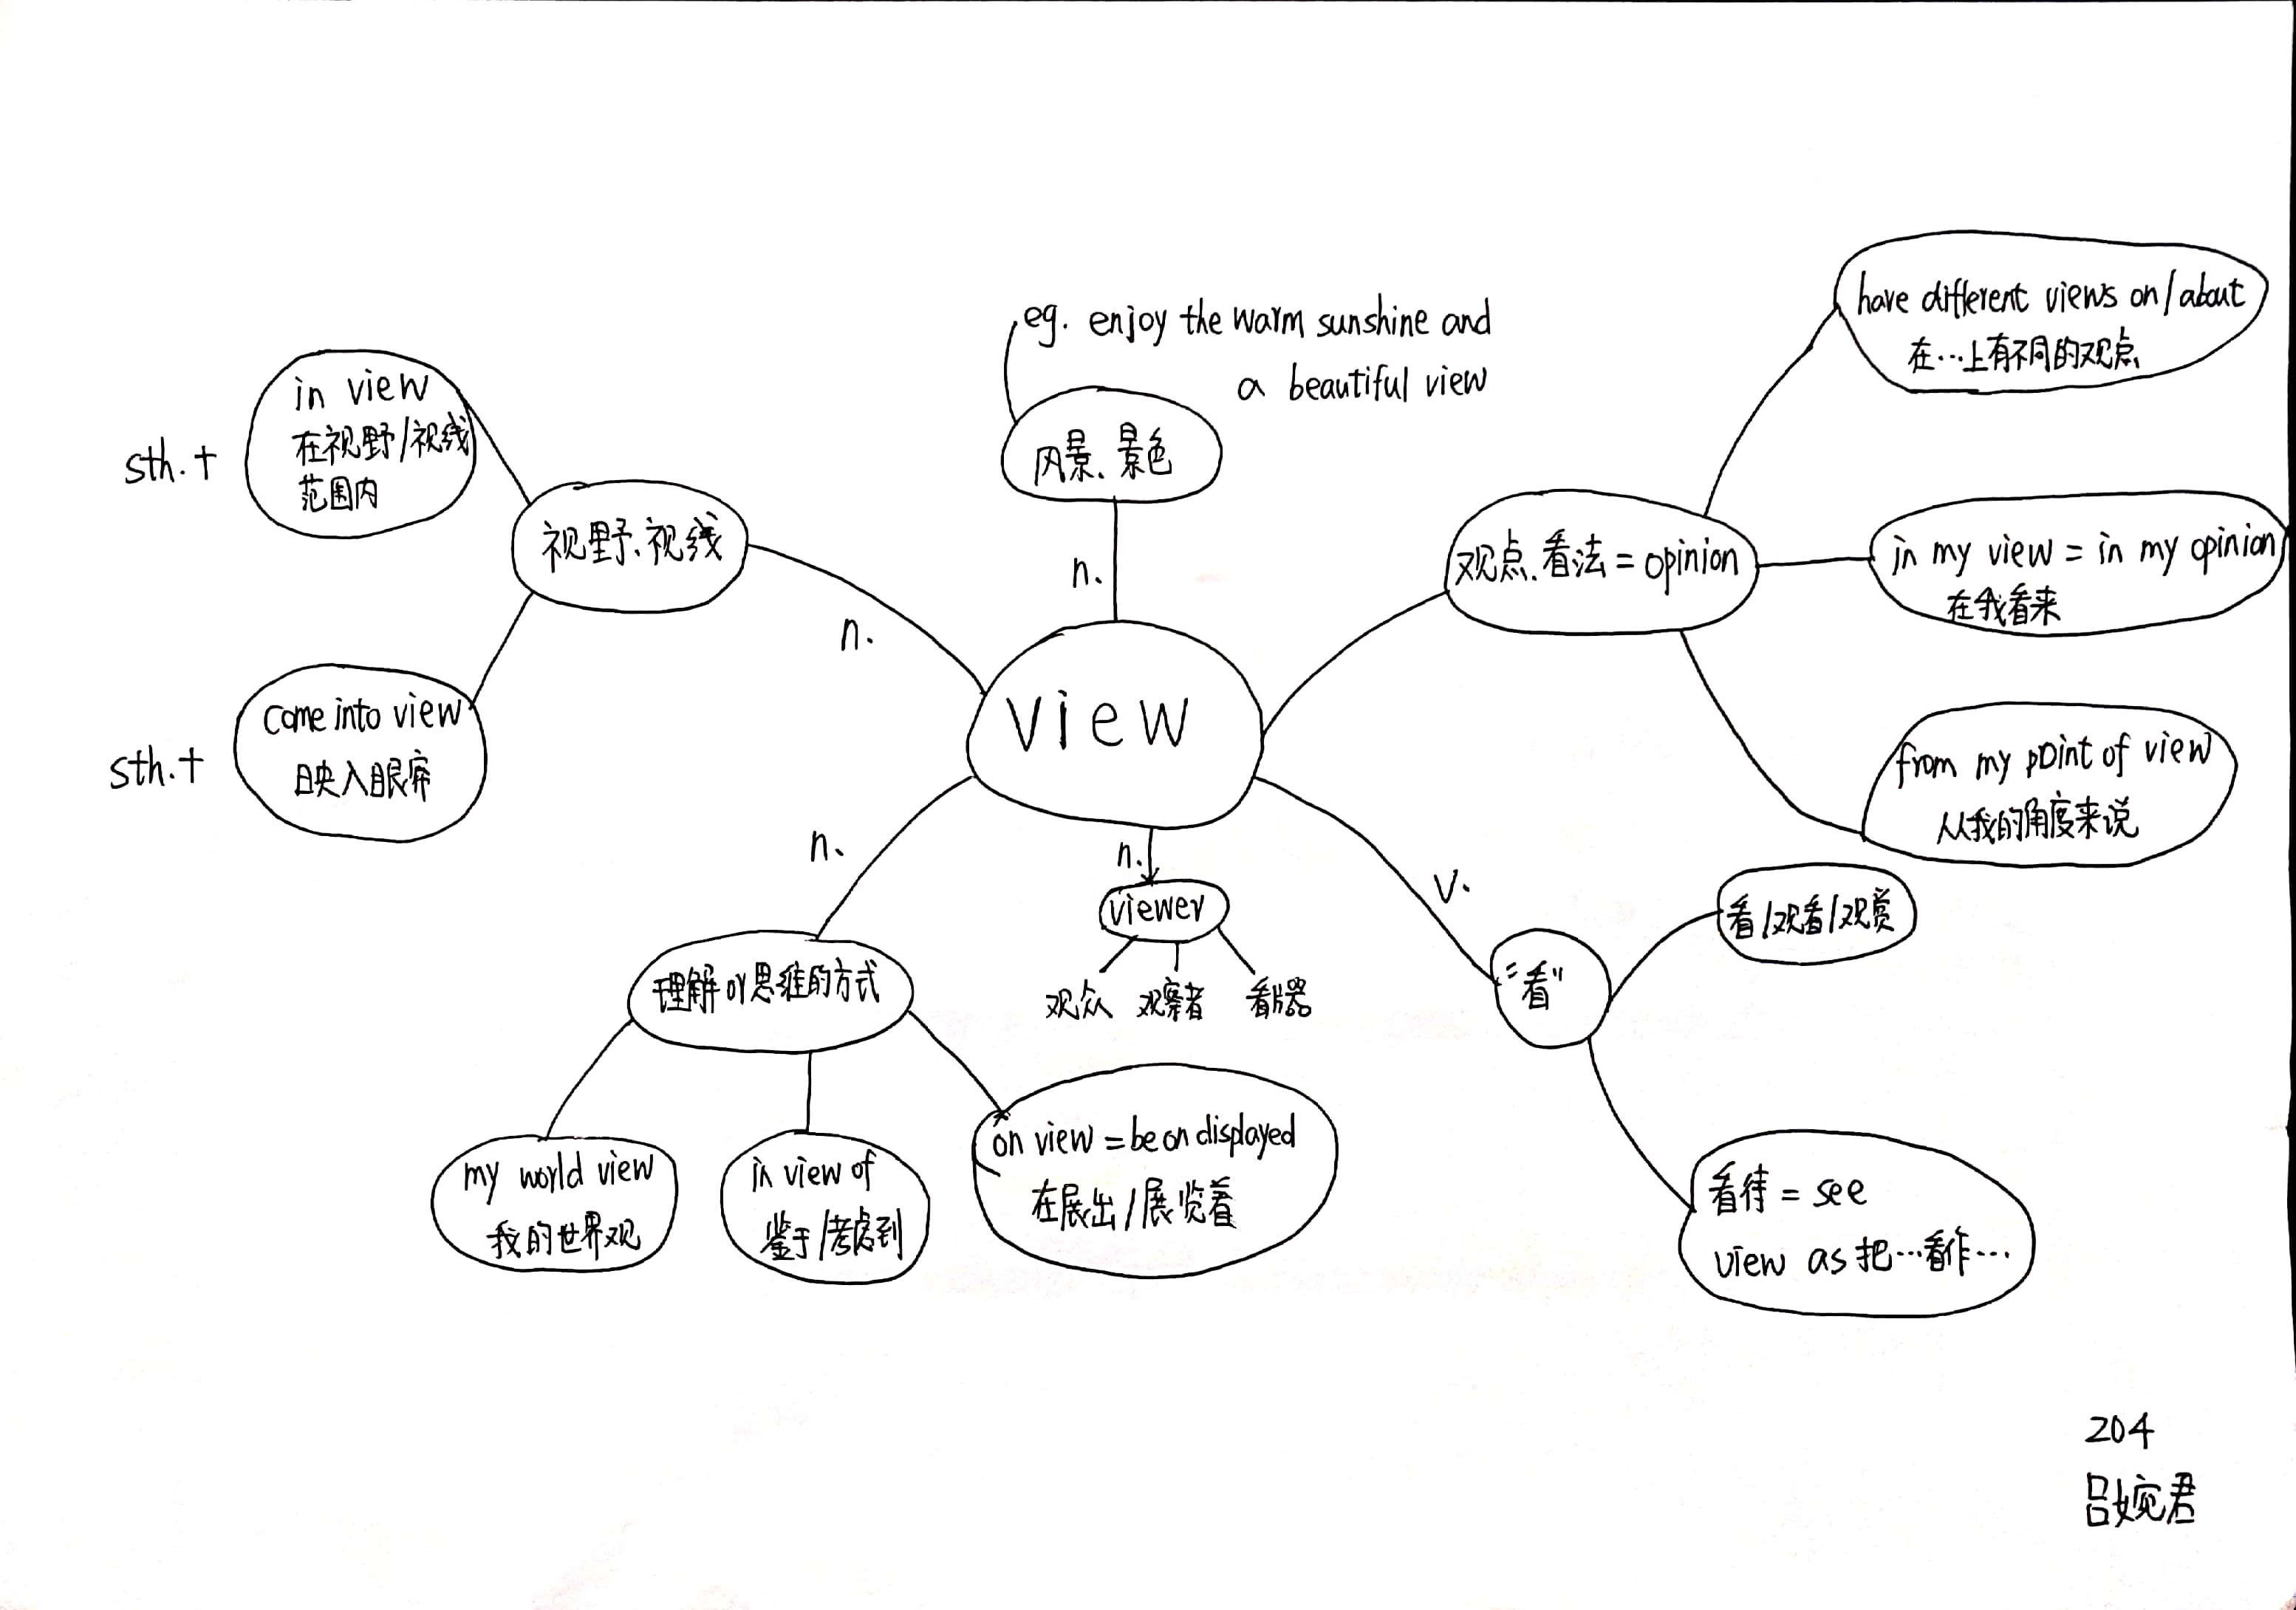 eg. enjoy the warm sunshine and
a beautiful view
风景、景色
n.
view
sth.+
in view
在视野/视线
范围内
视野、视线
n.
sth.+
come into view
映入眼帘
观点、看法=opinion
have different views on/about
在…上有不同的观点
in my view = in my opinion
在我看来
from my point of view
从我的角度来说
n.
理解or思维的方式
my world view
我的世界观
in view of
鉴于/考虑到
on view = be on displayed
在展出/展览着
n.
viewer
观众 观察者 看片器
v.
“看”
看/观看/观赏
看待 = see
view as 把…看作…
204
吕婉君